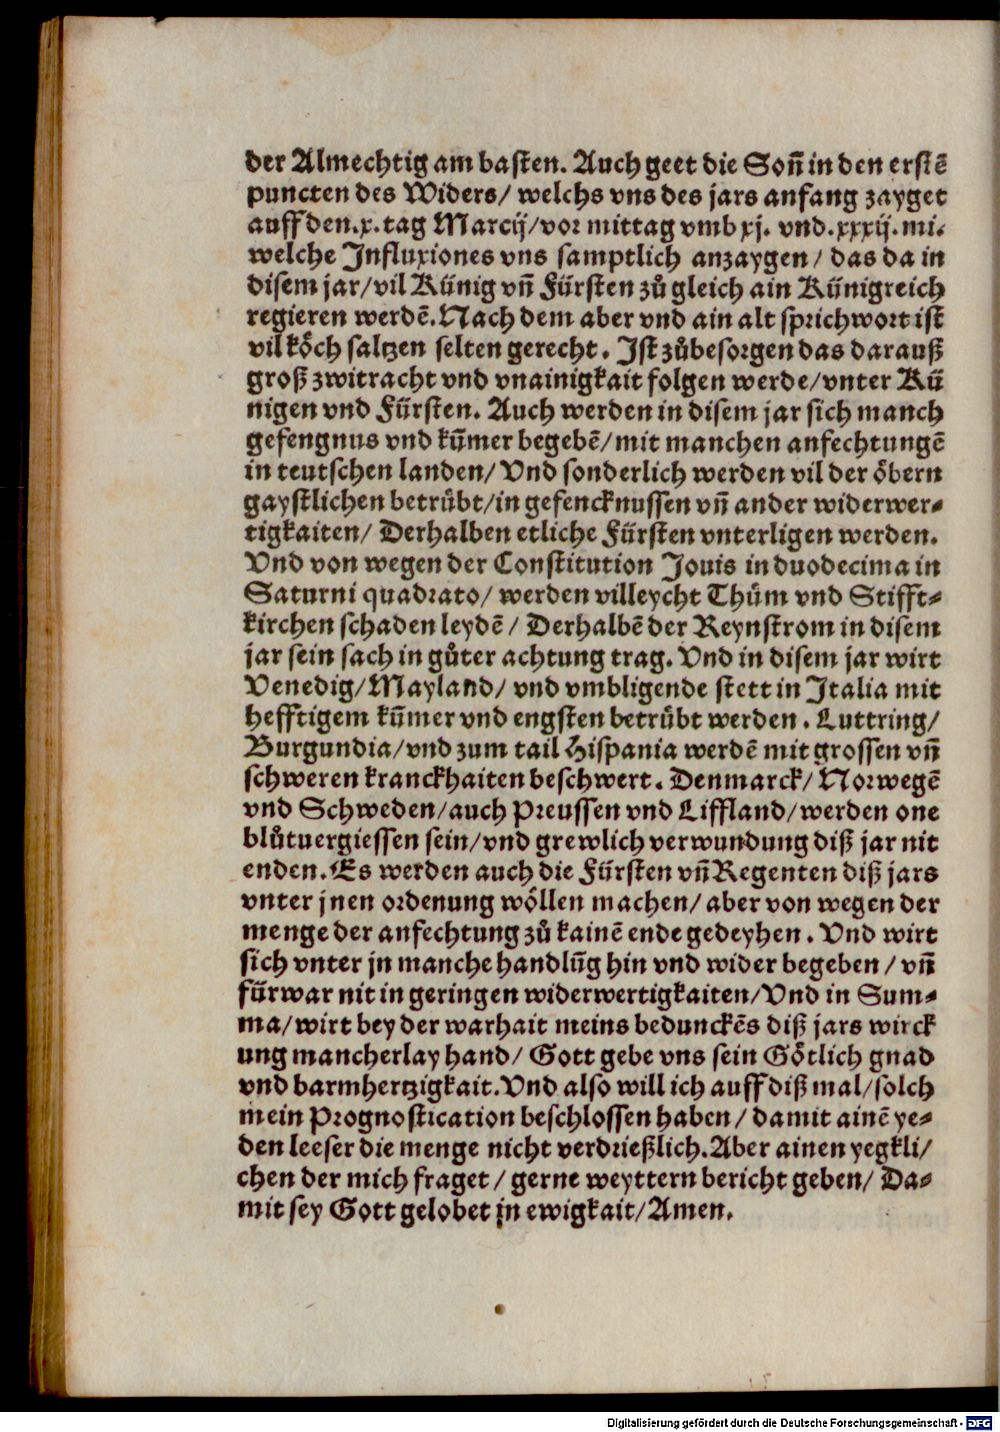 der Almechtig am basten. Auch geet die Soñ in den erstē
puncten des Widers/ welchs vns des jars anfang zayget
auff den .x. tag Marcij/vor mittag vmb xj. vnd .xxxij. mi.
welche Influxiones vns samptlich anzaygen/ das da in
disem jar/vil Künig vñ Fürsten zů gleich ain Künigreich
regieren werdē. Nach dem aber vnd ain alt sprichwort ist
vil köch saltzen selten gerecht. Ist zůbesorgen das darauß
groß zwitracht vnd vnainigkait folgen werde/vnter Kü
nigen vnd Fürsten. Auch werden in disem jar sich manch
gefengnus vnd kūmer begebē/mit manchen anfechtungē
in teutschen landen/ Vnd sonderlich werden vil der öbern
gaystlichen betrübt/in gefencknussen vñ ander widerwer-
tigkaiten/ Derhalben etliche Fürsten vnterligen werden.
Vnd von wegen der Constitution Jouis in duodecima in
Saturni quadrato/ werden villeycht Thům vnd Stifft-
kirchen schaden leydē/ Derhalbē der Reynstrom in disem
jar sein sach in gůter achtung trag. Vnd in disem jar wirt
Venedig/Mayland/ vnd vmbligende stett in Italia mit
hefftigem kūmer vnd engsten betrübt werden. Luttring/
Burgundia/vnd zum tail Hispania werdē mit grossen vñ
schweren kranckhaiten beschwert. Denmarck/ Norwegē
vnd Schweden/auch Preussen vnd Liffland/werden one
blůtuergiessen sein/vnd grewlich verwundung diß jar nit
enden. Es werden auch die Fürsten vñ Regenten diß jars
vnter jnen ordenung wöllen machen/ aber von wegen der
menge der anfechtung zů kainē ende gedeyhen. Vnd wirt
sich vnter jn manche handlūg hin vnd wider begeben/ vñ
fürwar nit in geringen widerwertigkaiten/Vnd in Sum-
ma/wirt bey der warhait meins bedunckēs diß jars wirck
ung mancherlay hand/ Gott gebe vns sein Götlich gnad
vnd barmhertzigkait. Vnd also will ich auff diß mal/solch
mein Prognostication beschlossen haben/ damit ainē ye-
den leeser die menge nicht verdrießlich. Aber ainen yegkli/
chen der mich fraget/ gerne weyttern bericht geben/ Da-
mit sey Gott gelobet jn ewigkait/Amen.
Digitalisierung gefördert durch die Deutsche Forschungsgemeinschaft - DFG